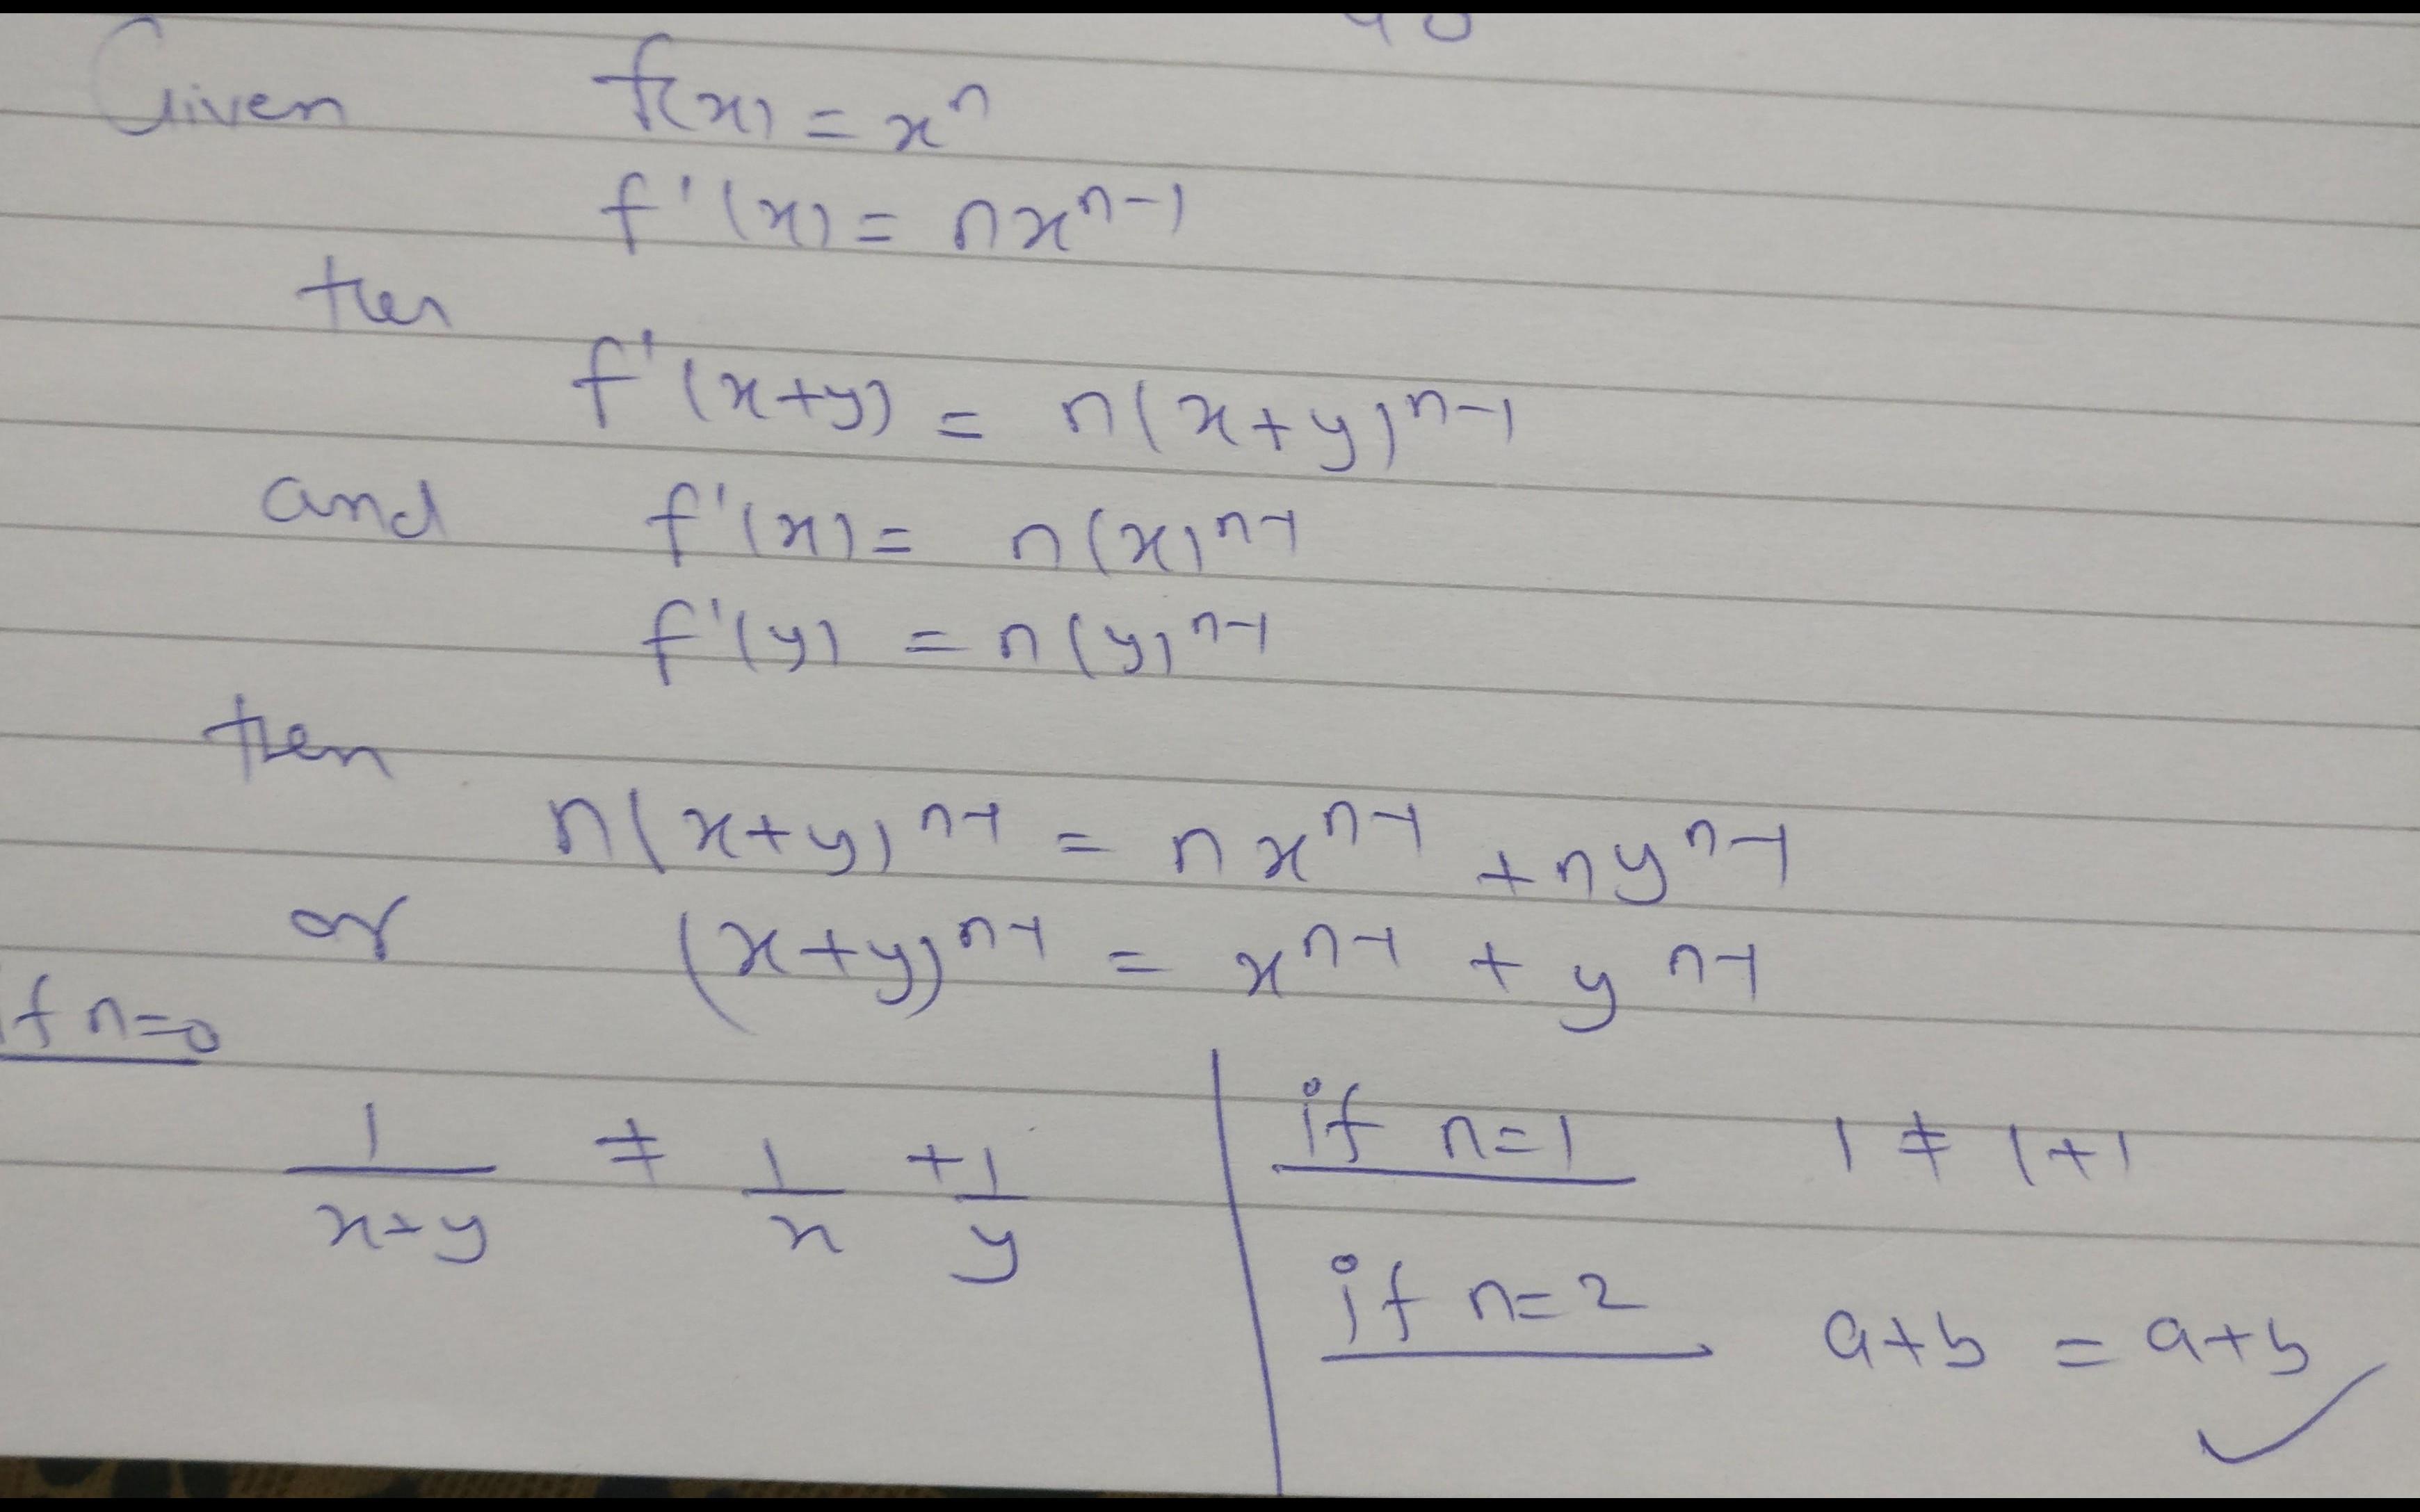 Given f(x) = xⁿ
f'(x) = nxⁿ⁻¹
then
f'(x+y) = n(x+y)ⁿ⁻¹
and f'(x) = n(x)ⁿ⁻¹
f'(y) = n(y)ⁿ⁻¹
then
n(x+y)ⁿ⁻¹ = nxⁿ⁻¹ + nyⁿ⁻¹
or (x+y)ⁿ⁻¹ = xⁿ⁻¹ + yⁿ⁻¹
if n=0
1/(x+y) ≠ 1/x + 1/y
if n=1 1 ≠ 1+1
if n=2 a+b = a+b ✓